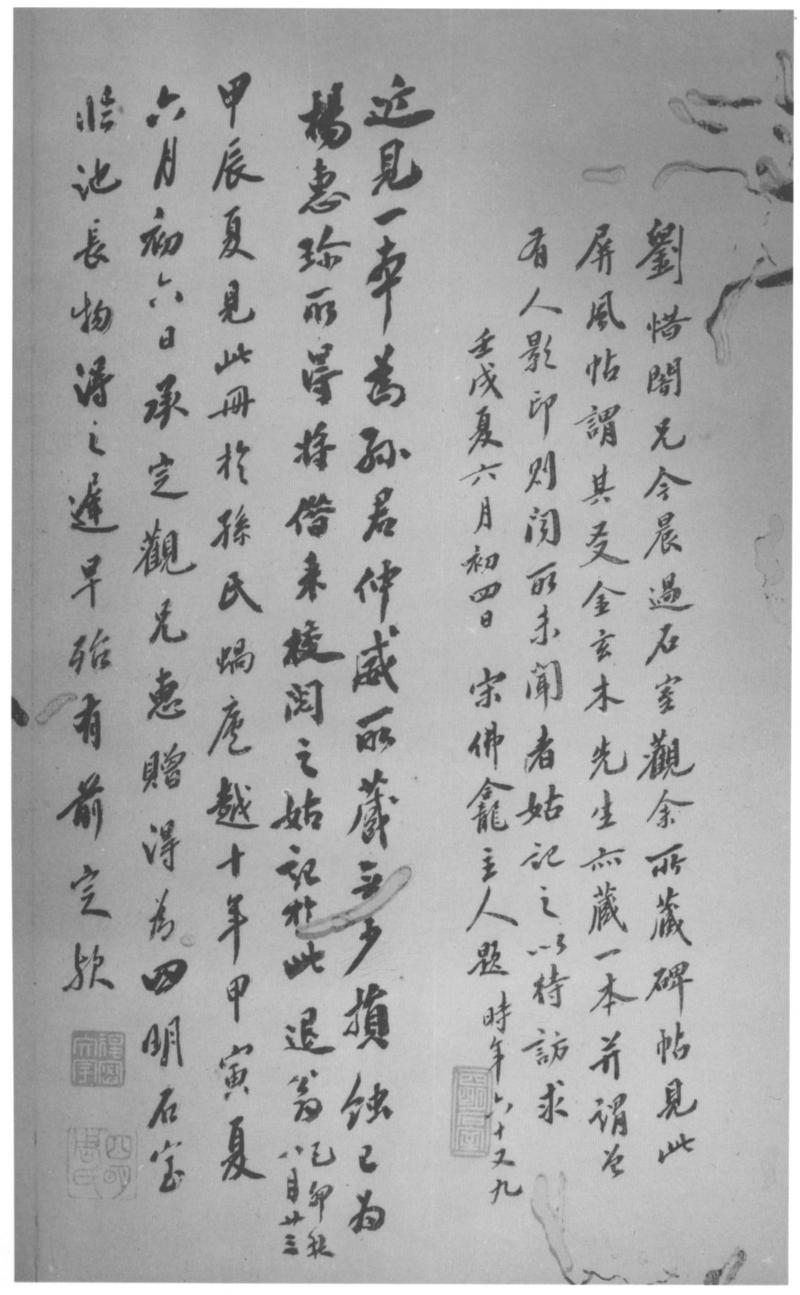 劉惜闇兄今晨過石室觀余所藏碑帖見此
屏風帖謂其友金玄木先生亦藏一本并謂曾
有人影印則闻所未聞者姑記之以待訪求
壬戌夏六月初四日 宋佛龕主人題 時年六十又九
近見一本為孙君仲威所藏无多損蝕已为
楊惠珍所得将借来校阅之姑記于此 退翁 乙卯秋
八月廿三
甲辰夏見此冊於孫氏蝸廬越十年甲寅夏
六月初六日承定觀兄惠贈得为四明石室
临池長物得之遲早殆有前定欤
四明
周氏